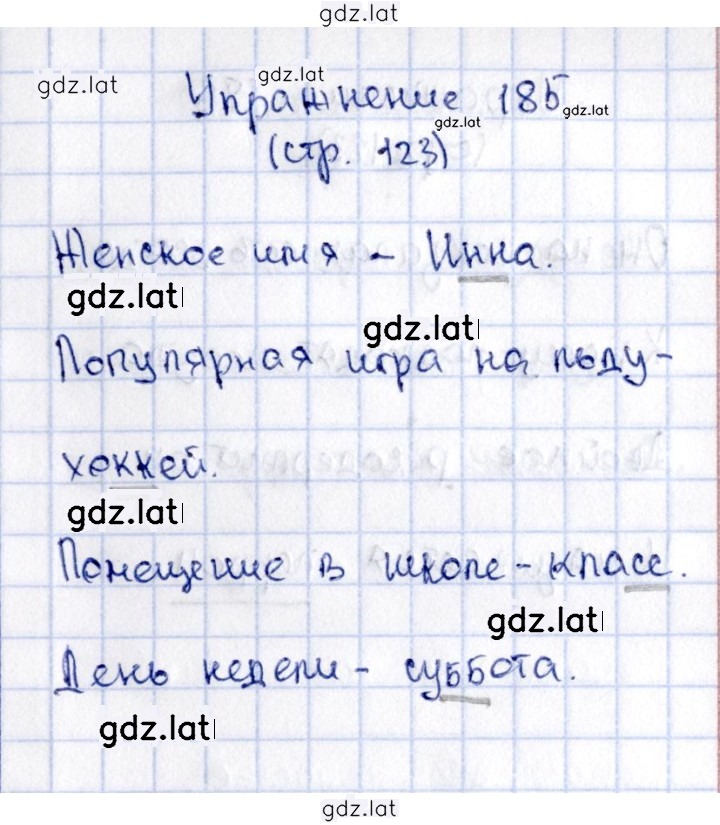 gdz.lat
gdz.lat
gdz.lat
Упражнение 185
gdz.lat
gdz.lat
(стр. 123)
Женское имя - Инна.
gdz.lat
gdz.lat
Популярная игра на льду -
хоккей.
gdz.lat
Помещение в школе - класс.
gdz.lat
День недели - суббота.
gdz.lat
gdz.lat